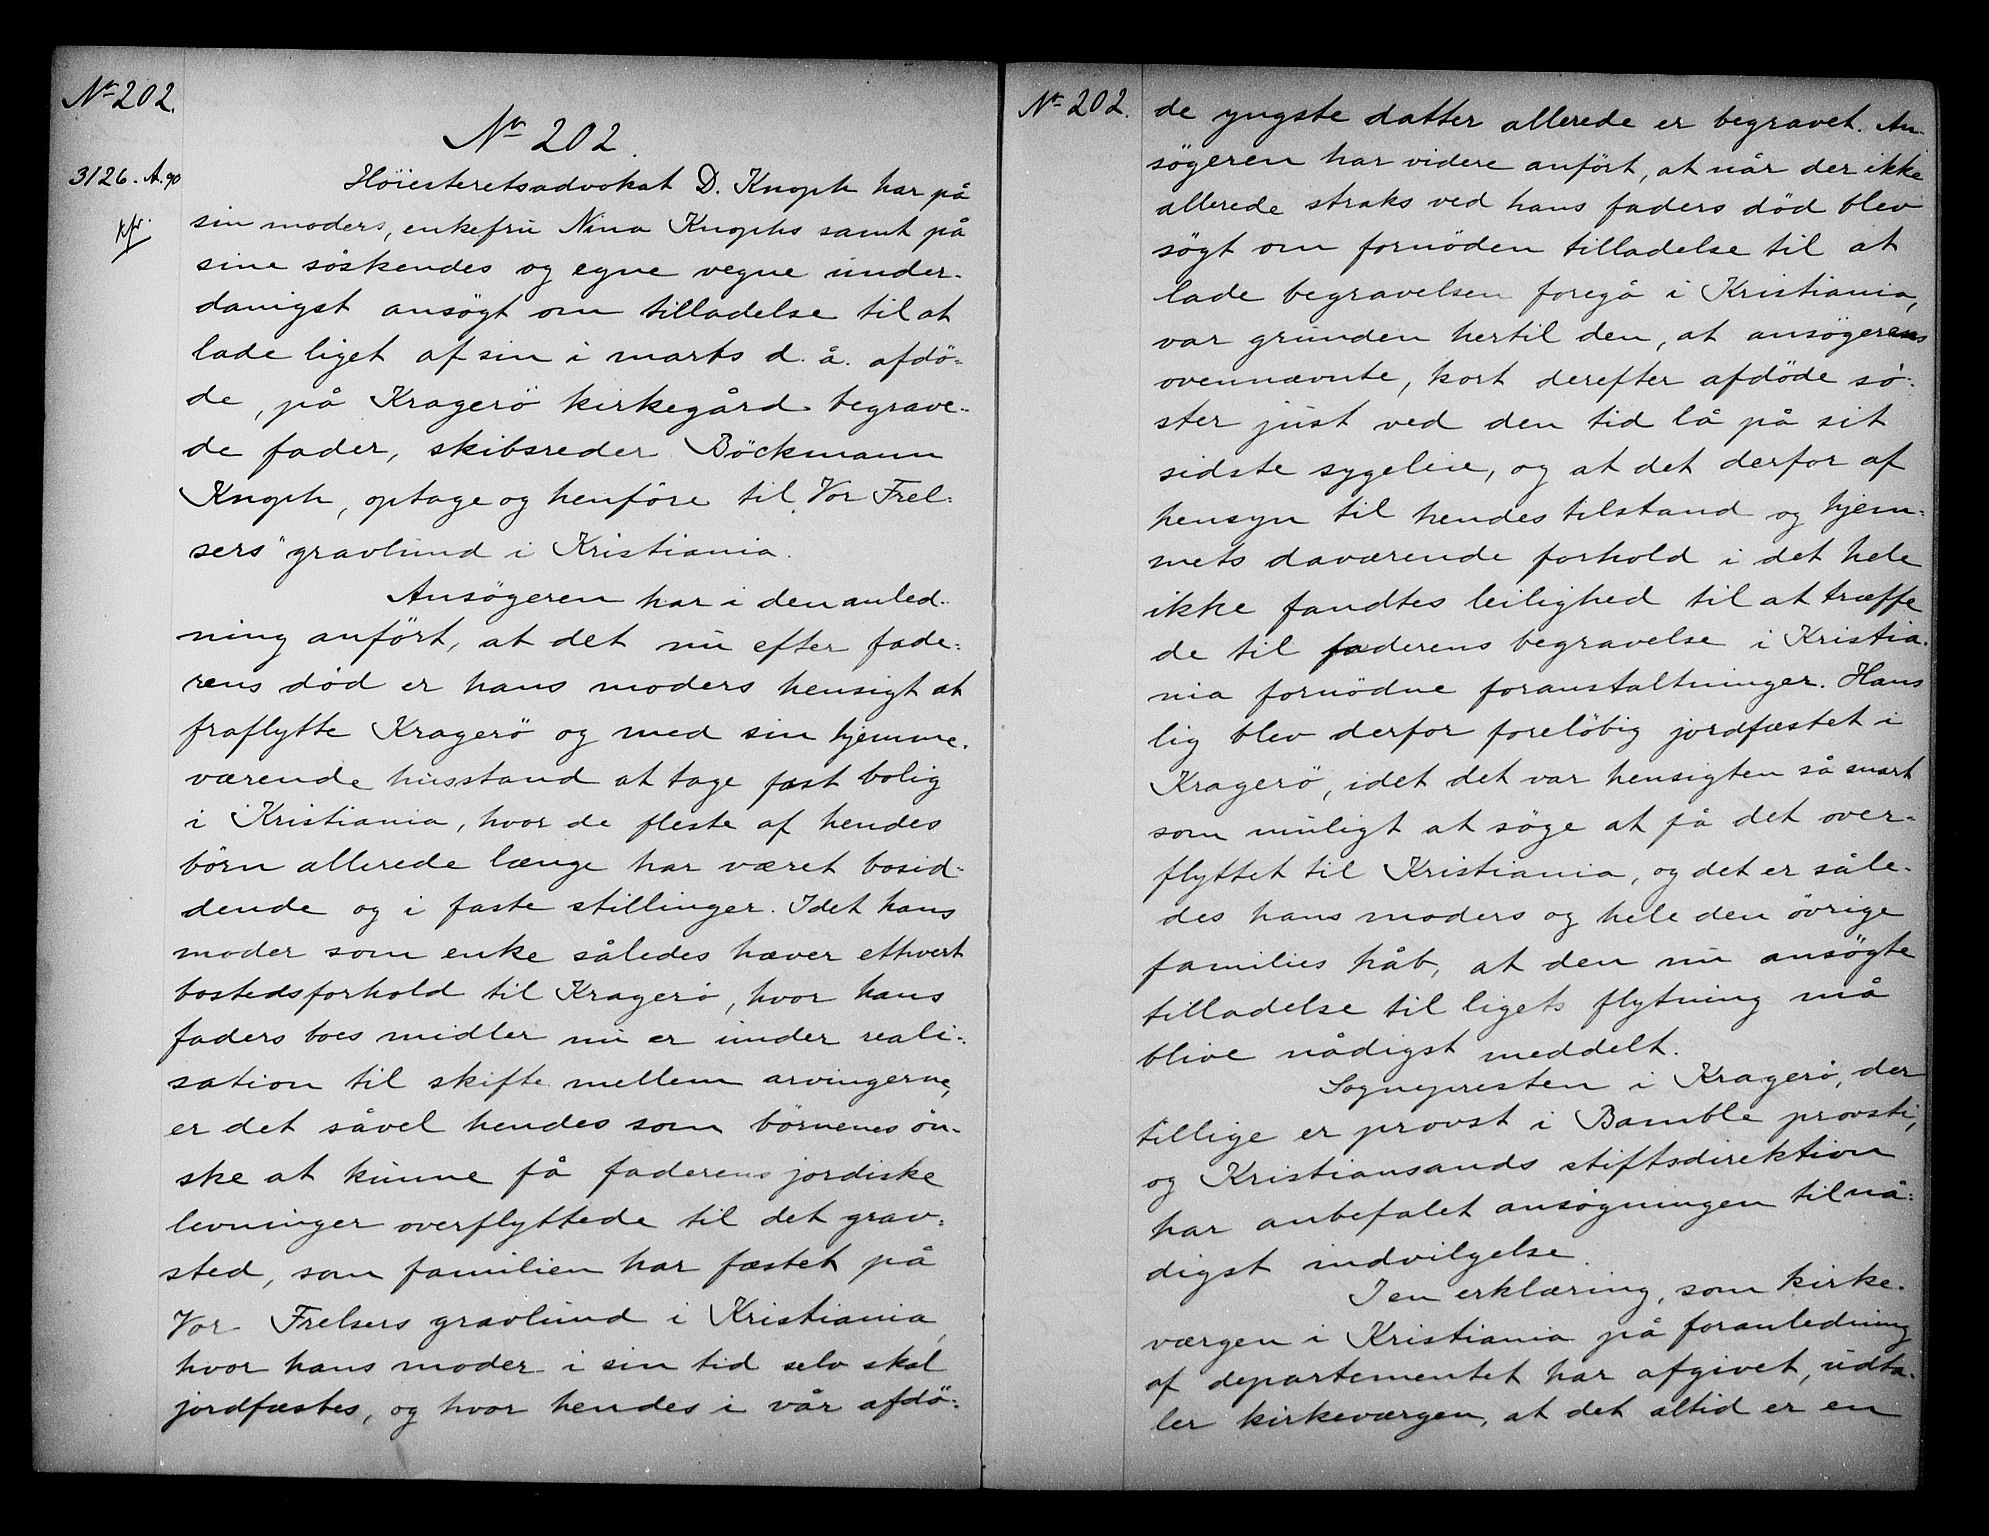 No 202.
3126. A. 90
kfr.
No 202.
Höiesteretsadvokat D. Knoph har på
sin moders, enkefru Nina Knophs samt på
sine söskendes og egne vegne under-
danigst ansögt om tilladelse til at
lade liget af sin i marts d. å. afdö-
de, på Kragerö kirkegård begrave-
de fader, skibsreder Böckmann
Knoph, optage og henföre til „Vor Frel-
sers" gravlund i Kristiania.
Ansögeren har i den anled-
ning anfört, at det nu efter fade-
rens död er hans moders hensigt at
fraflytte Kragerö og med sin hjemme-
værende husstand at tage fast bolig
i Kristiania, hvor de fleste af hendes
börn allerede længe har været bosid-
dende og i faste stillinger. Idet hans
moder som enke således hæver ethvert
bostedsforhold til Kragerö, hvor hans
faders boes midler nu er under reali-
sation til skifte mellem arvingerne,
er det såvel hendes som börnenes ön-
ske at kunne få faderens jordiske
levninger overflyttede til det grav-
sted, som familien har fæstet på
Vor Frelsers gravlund i Kristiania,
hvor hans moder i sin tid selv skal
jordfæstes, og hvor hendes i vår afdö-
No 202.
de yngste datter allerede er begravet. An-
sögeren har videre anfört, at når der ikke
allerede straks ved hans faders död blev
sögt om fornöden tilladelse til at
lade begravelsen foregå i Kristiania,
var grunden hertil den, at ansögerens
ovennævnte, kort derefter afdöde sö-
ster just ved den tid lå på sit
sidste sygeleie, og at det derfor af
hensyn til hendes tilstand og hjem-
mets daværende forhold i det hele
ikke fandtes leilighed til at træffe
de til faderens begravelse i Kristia-
nia fornödne foranstaltninger. Hans
lig blev derfor forelöbig jordfæstet i
Kragerö, idet det var hensigten så snart
som muligt at söge at få det over-
flyttet til Kristiania, og det er såle-
des hans moders og hele den övrige
families håb, at den nu ansögte
tilladelse til ligets flytning må
blive nådigst meddelt.
Sognepresten i Kragerö, der
tillige er provst i Bamble provsti,
og Kristiansands stiftsdirektion
har anbefalet ansögningen til nå-
digst indvilgelse.
I en erklæring, som kirke-
værgen i Kristiania på foranledning
af departementet har afgivet, udta-
ler kirkeværgen, at det altid er en